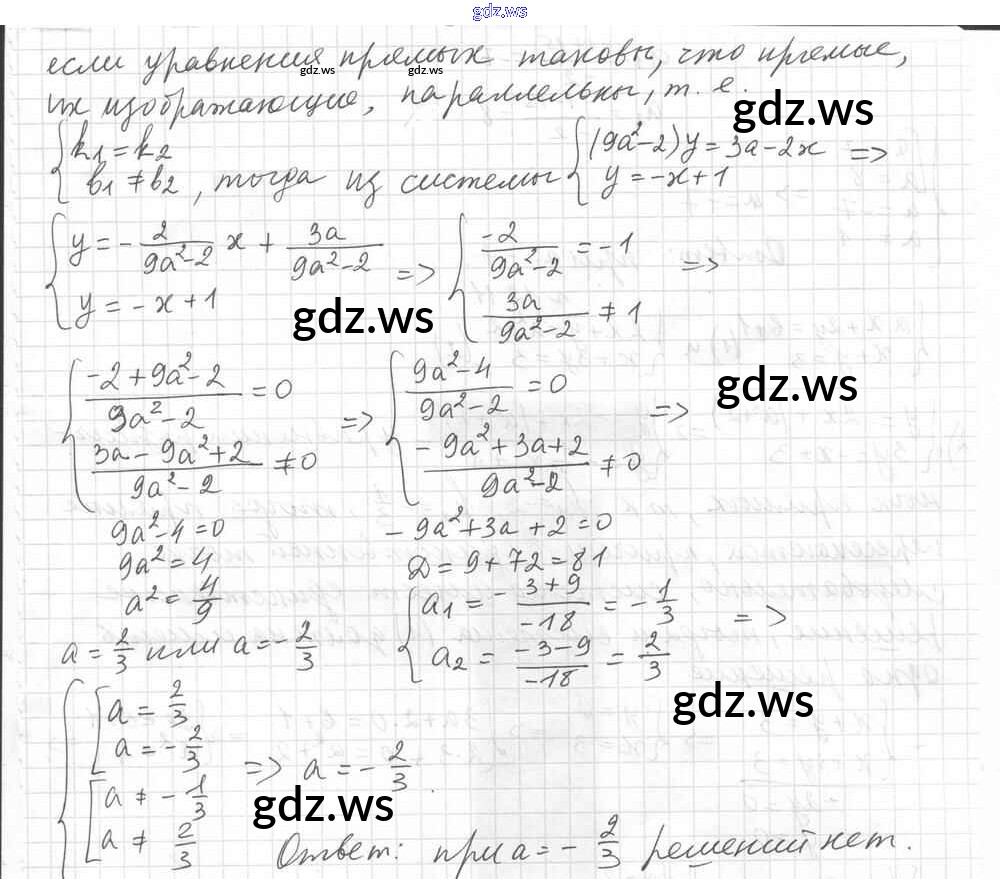 gdz.ws
если уравнения прямых таковы, что прямые,
gdz.ws gdz.ws
их изображающие, параллельны, т. е.
gdz.ws
{ k₁ = k₂
b₁ ≠ b₂, тогда из системы { (9a² − 2)y = 3a − 2x
y = −x + 1 =>
{ y = − 2/(9a² − 2) x + 3a/(9a² − 2)
y = −x + 1 => { −2/(9a² − 2) = −1
3a/(9a² − 2) ≠ 1 =>
gdz.ws
{ (−2 + 9a² − 2)/(9a² − 2) = 0
(3a − 9a² + 2)/(9a² − 2) ≠ 0 => { (9a² − 4)/(9a² − 2) = 0
(−9a² + 3a + 2)/(9a² − 2) ≠ 0 =>
gdz.ws
9a² − 4 = 0
9a² = 4
a² = 4/9
a = 2/3 или a = − 2/3
−9a² + 3a + 2 = 0
D = 9 + 72 = 81
{ a₁ = − (3 + 9)/(−18) = − 1/3
a₂ = (−3 − 9)/(−18) = 2/3 =>
gdz.ws
{ [ a = 2/3
a = − 2/3
[ a ≠ − 1/3
a ≠ 2/3
=> a = − 2/3.
gdz.ws
Ответ: при a = − 2/3 решений нет.